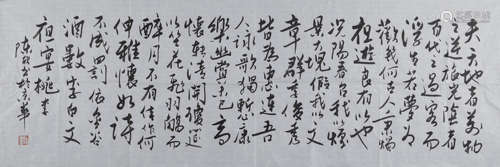 夫天地者萬物
之逆旅光陰者
百代之過客而
浮生若夢為
歡幾何古人秉燭
夜遊良有以也
況陽春召我以煙
景大塊假我以文
章群季俊秀
皆為惠連吾
人詠歌獨慚康
樂幽賞未已高
談轉清開瓊筵
以坐花飛羽觴而
醉月不有佳作何
伸雅懷如詩
不成罰依金谷
酒數李白文
夜宴桃李